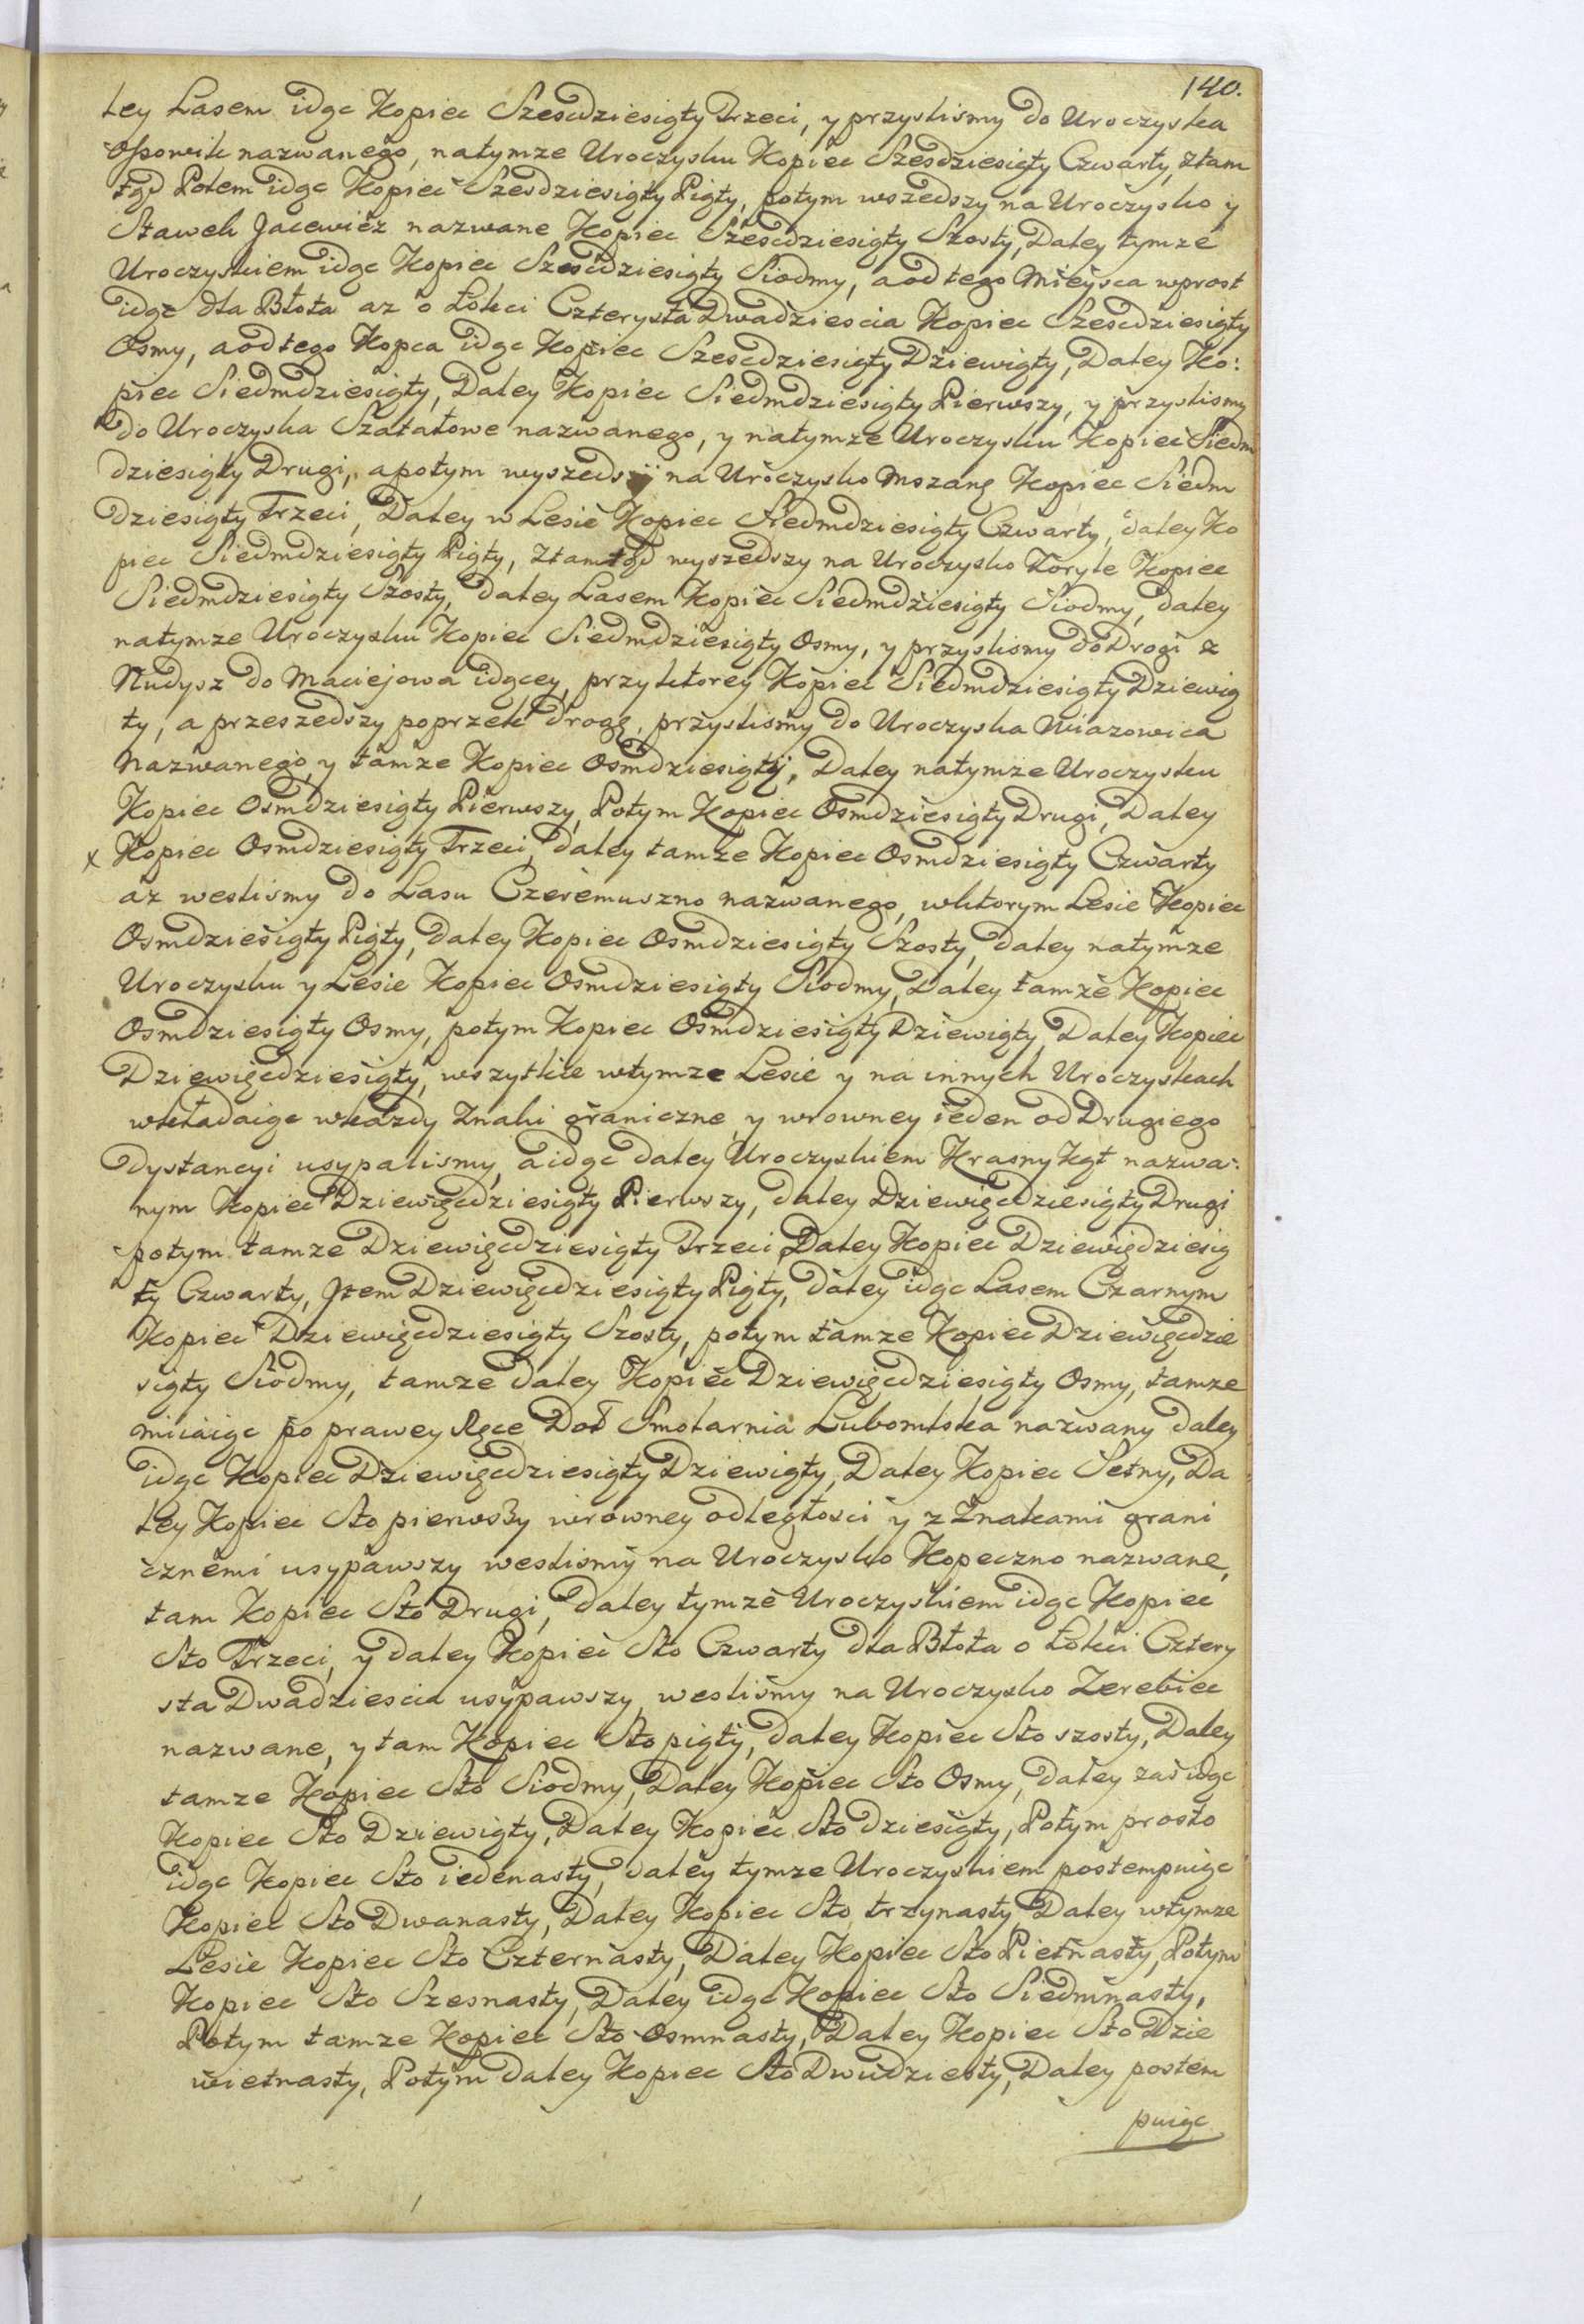 140.
ley Lasem idąc Kopiec Szescdziesiąty Trzeci, y przyslismy do Uroczyska
Ossowik nazwanego, natymze Uroczysku Kopiec Szesdziesiąty Czwarty, ztam
tąd Polem idąc Kopiec Szesdziesiąty Piąty, potym wszedszy na Uroczysko y
Stawek Jacewicz nazwane Kopiec Szescdziesiąty Szosty, Daley tymze
Uroczyskiem idąc Kopiec Szescdziesiąty Siodmy, aod tego Mieysca wprost
idąc dla Błota az o Łokci Czterysta Dwadziescia Kopiec Szescdziesiąty
Osmy, aod tego Kopca idąc Kopiec Szescdziesiąty Dziewiąty, Daley Ko:
piec Siedmdziesiąty, Daley Kopiec Siedmdziesiąty Pierwszy, y przyslismy
do Uroczyska Szałatowe nazwanego, y natymze Uroczysku Kopiec Siedm
dziesiąty Drugi, apotym wyszedszy na Uroczysko Mszane Kopiec Siedm
dziesiąty Trzeci, Daley w Lesie Kopiec Siedmdziesiąty Czwarty, daley Ko
piec Siedmdziesiąty Piąty, ztamtąd wyszedszy na Uroczysko Koryte Kopiec
Siedmdziesiąty Szosty, daley Lasem Kopiec Siedmdziesiąty Siodmy, daley
natymze Uroczysku Kopiec Siedmdziesiąty Osmy, y przyslismy do Drogi z
Nudysz do Maciejowa idącey, przyktorey Kopiec Siedmdziesiąty Dziewią
ty, a przeszedszy poprzek drogę, przyslismy do Uroczyska Wiazowica
Nazwanego, y tamze Kopiec Osmdziesiąty, Daley natymze Uroczysku
Kopiec Osmdziesiąty Pierwszy, Potym Kopiec Osmdziesiąty Drugi, Daley
x Kopiec Osmdziesiąty Trzeci, daley tamze Kopiec Osmdziesiąty Czwarty
az weslismy do Lasu Czeremuszno nazwanego, wktorym Lesie Kopiec
Osmdziesiąty Piąty, daley Kopiec Osmdziesiąty Szosty, daley natymze
Uroczysku y Lesie Kopiec Osmdziesiąty Siodmy, Daley tamze Kopiec
Osmdziesiąty Osmy, potym Kopiec Osmdziesiąty Dziewiąty, Daley Kopiec
Dziewięcdziesiąty, wszytkie wtymze Lesie y na innych Uroczyskach
wkładaiąc wkazdy Znaki graniczne, y wrowney ieden od Drugiego
Dystancyi usypalismy, aidąc daley Uroczyskiem Krasny Kąt nazwa:
nym Kopiec Dziewięcdziesiąty Pierwszy, daley Dziewięcdziesiąty Drugi
potym tamze Dziewięcdziesiąty Trzeci, Daley Kopiec Dziewiędziesią
ty Czwarty, Item Dziewięcdziesiąty Piąty, daley idąc Lasem Czarnym
Kopiec Dziewięcdziesiąty Szosty, potym tamze Kopiec Dziewięcdzie
siąty Siodmy, tamze daley Kopiec Dziewięcdziesiąty Osmy, tamze
miiaiąc po prawey Ręce Doł Smolarnia Lubomlska nazwany daley
idąc Kopiec Dziewięcdziesiąty Dziewiąty, Daley Kopiec Setny, Da
ley Kopiec Sto pierwszy wrowney odległosci y z Znakami grani
cznemi usypawszy weslismy na Uroczysko Kopeczno nazwane,
tam Kopiec Sto Drugi, daley tymze Uroczyskiem idąc Kopiec
Sto Trzeci, y daley Kopiec Sto Czwarty dla Błota o Łokci Cztery
sta Dwadziescia usypawszy, weslismy na Uroczysko Zerebiec
nazwane, y tam Kopiec Sto piąty, daley Kopiec Sto szosty, Daley
tamze Kopiec Sto Siodmy, Daley Kopiec Sto Osmy, daley zas idąc
Kopiec Sto Dziewiąty, Daley Kopiec Sto dziesiąty, Potym prosto
idąc Kopiec Sto iedenasty, daley tymze Uroczyskiem postempuiąc
Kopiec Sto Dwanasty, Daley Kopiec Sto trzynasty, Daley wtymze
Lesie Kopiec Sto Czternasty, Daley Kopiec Sto Pietnasty, Potym
Kopiec Sto Szesnasty, Daley idąc Kopiec Sto Siedmnasty,
Potym tamze Kopiec Sto Osmnasty, Daley Kopiec Sto Dzie
wietnasty, Potym daley Kopiec Sto Dwudziesty, Daley postem
puiąc